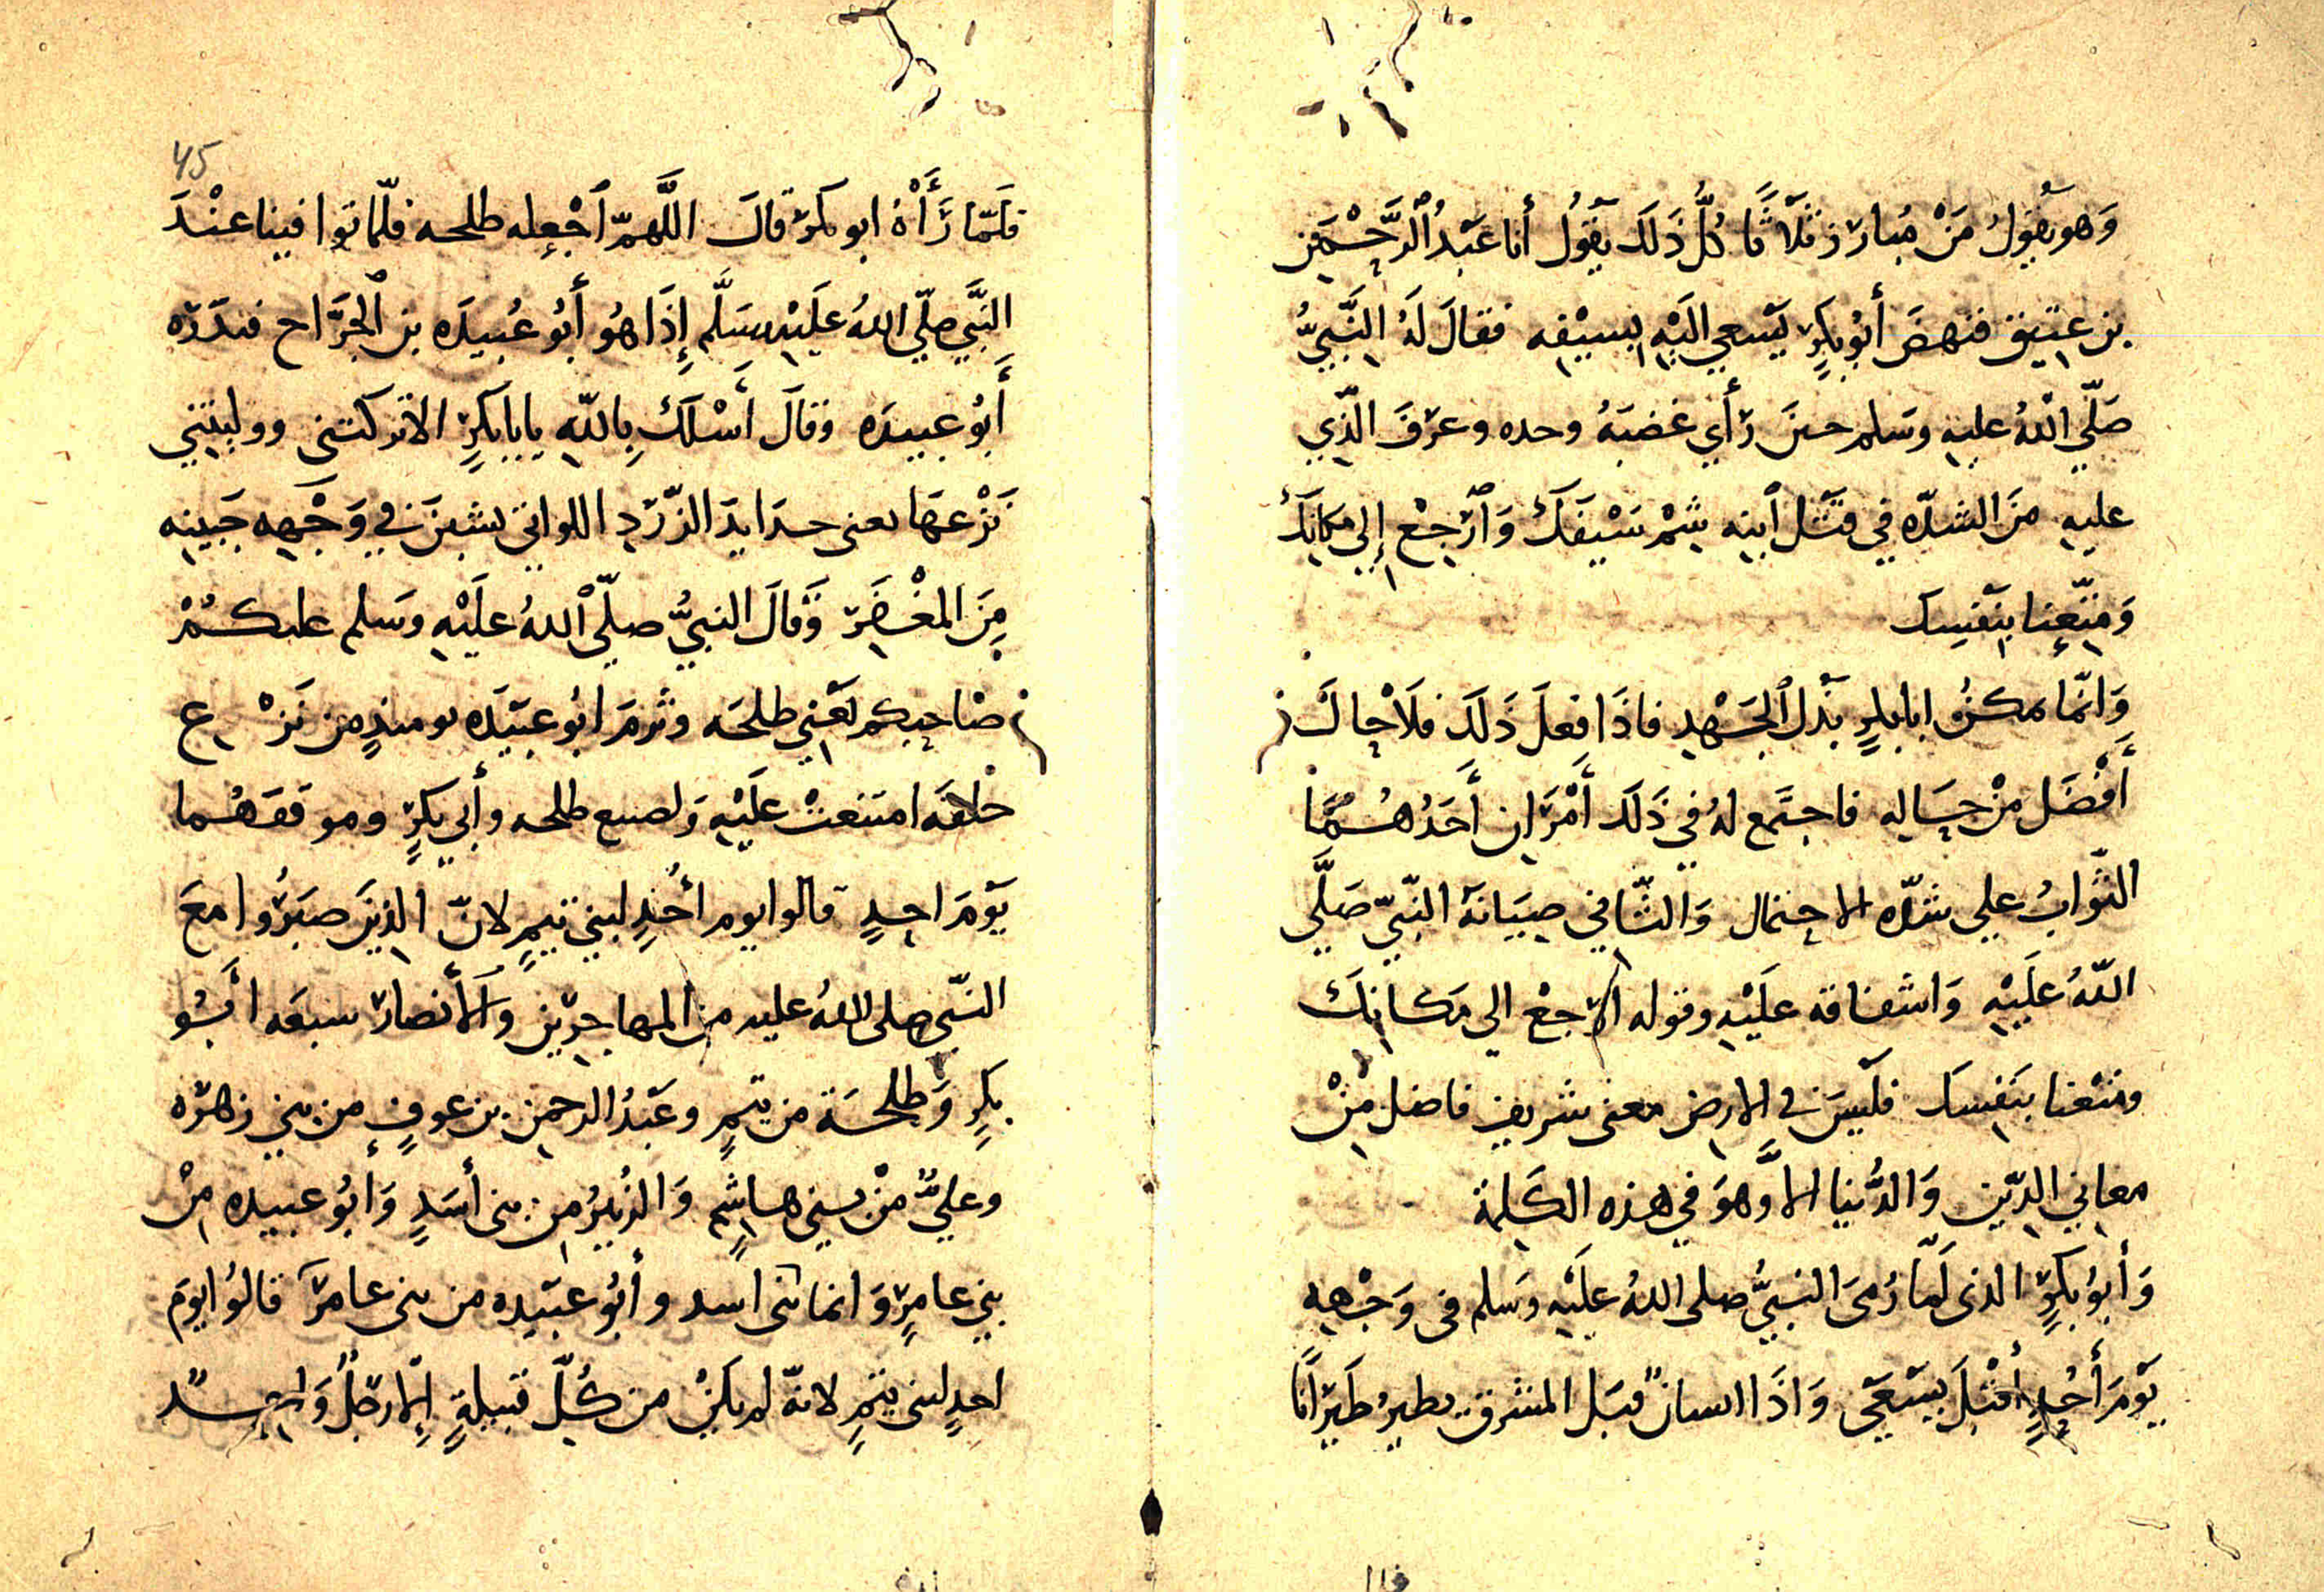 وَهو يَقُولُ مَنْ مُبارز ثَلَاثًا كُلُّ ذَلَك يَقُولُ أنا عَبْدُ الرَّحْمَنِ
بن عتيق فنهضَ أبُو بكرٍ يَسعي اليْهِ بسيْفِه فقالَ لَهُ النَّبيُّ
صَلّي اللهُ عليهِ وسَلم حينَ رَأي غضبَهُ وحده وعرَفَ الَّذِي
عليهِ منَ الشدّه فِي قتْل ٱبنِه شِمْ سَيْفَكَ وَٱرْجِعْ إِلي مكانِكَ
وَمتِّعنا بنَفْسِك
وَانّما مكنُ ابا بكرٍ بَذل ٱلجَهْدِ فاذَا فعلَ ذَلَك فلَا حالَ
أَفْضَل منْ حَالِه فاجتمَع لهُ فِي ذَلَك أَمْرَانِ أَحَدُهُمَا
الثَّوابُ علي شدّه الاحتمال وَالثّاني صِيَانَة النَّبيّ صَلَّي
اللّهُ عَلَيْهِ وَاشفاقه عَلَيْهِ وقوله ارجعْ الي مَكانِكَ
ومتعْنا بنَفسِك فلَيسَ في الارض معنى شريف فاضل مِنْ
معاني الدِّين وَالدُّنيا الاَّ وهوَ فِي هذه الكَلمة
وَأبُو بَكرٍ الذى لَمّا رُمىَ النبيُّ صلى اللهُ عَلَيْهِ وَسَلم فى وَجْهِهِ
يَوْمَ أُحُدٍ أقْبَلَ يَسْعَى وَاذَا انسانٌ قبَل المشرق يطيرُ طَيرَانًا
45
فلَمّا رَأَهُ ابو بكرٍ قالَ اللَّهمّ ٱجْعله طلحه فلمّا توافينا عنْدَ
النَّبَي صلّي اللهُ عَلَيْه وسَلَّم إِذَا هُو أَبُو عُبيدَه بن ٱلجرَّاح فبدَرَه
أَبُو عبيدَه وقالَ أَسْلَكَ بِاللّهِ يابا بَكرٍ الا تركتنى ووليتنِي
نَزْعهَا يعنى حدَايدَ الزّرَدِ اللواتي نشِبنَ فِي وَجْهِه جَبِينِه
مِنَ المغْفَر وَقالَ النبيُّ صلّي ٱللهُ علَيْهِ وسَلم عليكُمْ
صَاحِبكم يَعْنِي طلحَه وثرمَ ابُو عبَيْدَه يومئذٍ من نَزْع
حلقَه امتنعتْ عَلَيْهِ وَلصنيع طلحه وأبي بَكرٍ وموقفهُما
يَوْمَ احدٍ قالوا يوم أحُدٍ لبني تَيمٍ لانّ الذينَ صبَرُوا معَ
النّبى صلى اللهُ عليه من المهاجرِين والأنصار سبعَه ابُو
بكرٍ وَطلحَة من تيمٍ وعَبدُ الرحمن بن عوفٍ من بني زهره
وعليٌّ منْ بني هاشمٍ وَالزُبيْرُ من بنى أسَدٍ وَأبُو عبيده مِنْ
بني عامرٍ وَانما بنى اسد وأبُو عبَيْده من بنى عامرٍ قالُوا يومَ
احدٍ لبنى تيمٍ لانّه لم يكنْ من كُلّ قبيلةٍ إلّا رجُلٌ وَاحِدٌ